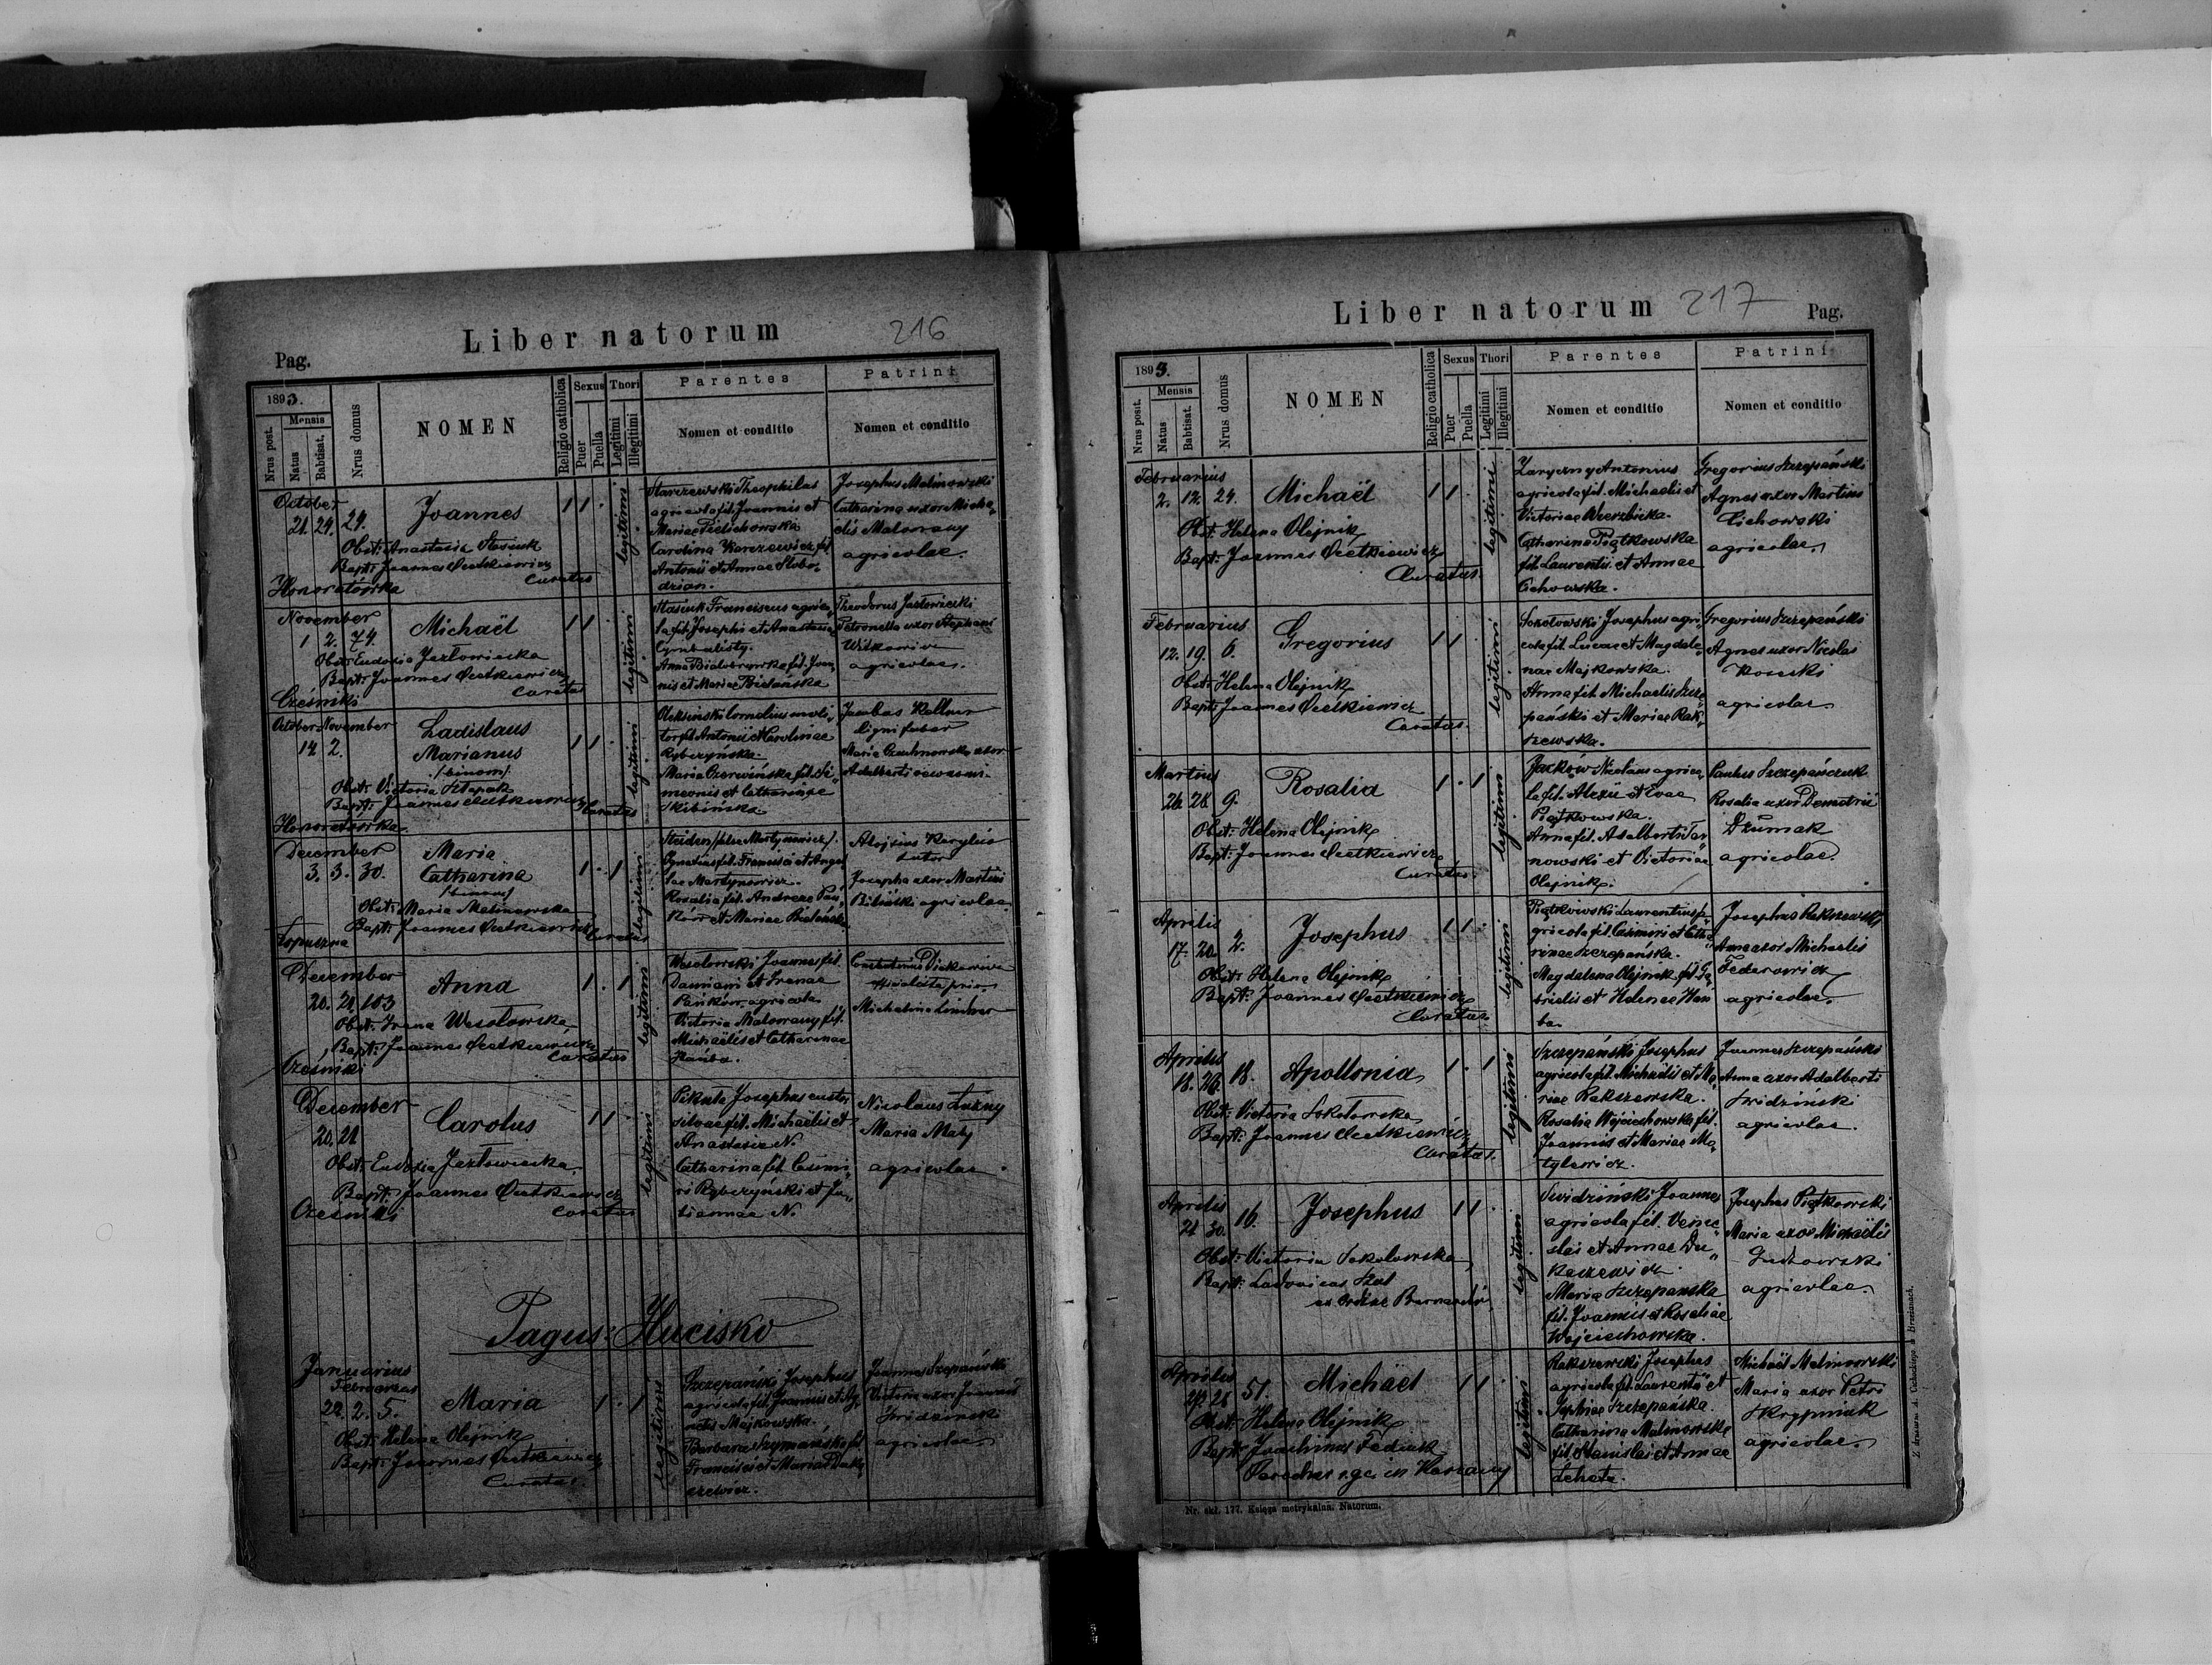 Liber natorum 216
Pag.
1893.
Nrus post.
Mensis
Natus
Babtisat.
Nrus domus
NOMEN
Religio catholica
Sexus
Puer
Puella
Thori
Legitimi
Illegitimi
Parentes
Nomen et conditio
Patrini
Nomen et conditio
October
21. 29. 29.
Joannes
1 1 .
legitimi
Obst: Anastasia Stasiuk
Bapt: Joannes Cietkiewicz
Curatus
Honoratówka
Starczewski Theophilus
agricola fil. Joannis et
Mariae
Carolina Karczewicz fil.
Antonii et Annae Słobo„
dzian.
Josephus Malinowski
Catharina uxor Micha„
elis Malowany
agricolae.
November
1 2. 74.
Michaël
1 1 .
legitimi
Obst: Eudosia Jazłowiecka
Bapt: Joannes Cietkiewicz
Curatus
Cześniki
Stasiuk Franciscus agrico„
la fil. Josephi et Anastasiae
Cymbalisty.
Anna fil. Joan„
nis et Mariae Bielańska
Theodorus Jazłowiecki
Petronella uxor Stephani
Witkowicz
agricolae.
October November
14 2.
Ladislaus
Marianus
/binom/
1 1 .
legitimi
Obst: Victoria
Bapt: Joannes Cietkiewicz
Curatus
Honoratówka
Cornelius moli„
tor fil. Antonii et Carolinae
Rybczyńska.
Maria Czerwińska fil. Si„
meonis et Catharinae
Skibińska.
Jacobus Kellner
lignifaber
Maria uxor
Adalberti
December
3. 3. 30.
Maria
Catharina
/binom/
1 . 1
legitimi
Obst: Maria Malinowska
Bapt: Joannes Cietkiewicz
Curatus
Łopuszna
Ignatius fil. Francisci et Ange„
lae Martynowicz.
Rosalia fil. Andreae Pań„
ków et Mariae Bielańska
Alojsius
sutor
Josepha uxor Martini
Biliński agricolae
December
20. 21. 103
Anna
1 . 1
legitimi
Obst: Irena Wesołowska
Bapt: Joannes Cietkiewicz
Curatus
Cześniki
Wesołowski Joannes fil.
Damiani et Irenae
Pańków agricola
Victoria Malowany fil.
Michaëlis et Catharinae
Hańba.
Constantinus
Michalina Lindner
December
20. 21
Carolus
1 1 .
legitimi
Obst: Eudosia Jazłowiecka
Bapt: Joannes Cietkiewicz
Curatus
Cześniki
Pikuła Josephus custos
silvae fil. Michaëlis et
Anastasiae N.
Catharina fil. Casimi„
ri Rybczyński et Ju„
liannae N.
Nicolaus Łużny
Maria Mały
agricolae.
Pagus: Hucisko
Januarius
Februarius
22. 2. 5.
Maria
1 . 1
legitimi
Obst: Helena Olejnik
Bapt: Joannes Cietkiewicz
Curatus
Szczepański Josephus
agricola fil. Joannis et Ag„
netis Majkowska.
Barbara Szymańska fil.
Francisci et Mariae Duka„
czewicz.
Joannes Szczepański
Victoria uxor Joannis
Swidzinski
agricolae
Liber natorum 217
Pag.
1893.
Nrus posit.
Mensis
Natus
Babtisat.
Nrus domus
NOMEN
Religio catholica
Sexus
Puer
Puella
Thori
Legitimi
Illegitimi
Parentes
Nomen et conditio
Patrini
Nomen et conditio
Februarius
2. 12. 24.
Michaël
1 1 .
legitimi
Obst: Helena Olejnik
Bapt: Joannes Cietkiewicz
Curatus.
Zaryczny Antonius
agricola fil. Michaelis et
Victoriae Wierzbicka.
Catharina Piątkowska
fil. Laurentii et Annae
Cichowska.
Gregorius Szczepański
Agnes uxor Martini
Cichowski
agricolae.
Februarius
12. 19. 6.
Gregorius
1 1 .
legitimi
Obst: Helena Olejnik
Bapt: Joannes Cietkiewicz
Curatus.
Sokołowski Josephus agri„
cola fil. Lucae et Magdale„
nae Majkowska.
Anna fil. Michaelis Szcze„
pański et Mariae Rak„
szewska.
Gregorius Szczepański
Agnes uxor Nicolai
agricolae
Martius
26 28 9.
Rosalia
1 . 1
legitimi
Obst: Helena Olejnik
Bapt: Joannes Cietkiewicz
Curatus.
Jaćków Nicolaus agrico„
la fil. Alexii et Evae
Piątkowska.
Anna fil. Adalberti Tar„
nowski et Victoriae
Olejnik.
Paulus Szczepańczuk
Rosalia uxor Demetrii
Dżumak
agricolae.
Aprilis
17. 20. 2.
Josephus
1 1 .
legitimi
Obst: Helena Olejnik
Bapt: Joannes Cietkiewicz
Curatus.
Piątkowski Laurentius a„
gricola fil. Casimiri et Catha„
rinae Szczepańska.
Magdalena Olejnik fil. Ga„
brielis et Helenae Hań„
ba.
Josephus Rakszewski
Anna uxor Michaelis
Federowicz
agricolae.
Aprilis
18. 23. 18.
Apollonia
1 . 1
legitimi
Obst: Victoria Sokołowska
Bapt: Joannes Cietkiewicz
Curatus.
Szczepański Josephus
agricola fil. Michaelis et Ma„
riae Rakszewska.
Rosalia Wojciechowska fil.
Joannis et Mariae Ma„
tylewicz.
Joannes Szczepański
Anna uxor Adalberti
Swidziński
agricolae.
Aprilis
21 30. 16.
Josephus
1 1 .
legitimi
Obst: Victoria Sokołowska
Bapt: Ladovicus Szul
ex Ordine Bernardin
Swidziński Joannes
agricola fil. Vence„
slai et Annae Du„
kaczewicz.
Maria Szczepańska
fil. Joannis et Rosaliae
Wojciechowska.
Josephus Piątkowski
Maria uxor Michaëlis
agricolae.
Aprilis
27. 28 51.
Michaël
1 1 .
legitimi
Obst: Helena Olejnik
Bapt: Joachimus Fediuk
Parochus r.gc. in
Rakszewski Josephus
agricola fil. Laurentii et
Sophiae Szczepańska.
Catharina Malinowska
fil. Stanislai et Annae
Michaël Malinowski
Maria uxor Petri
Skrypniak
agricolae.
Nr. skł. 177. Księga metrykalna. Natorum.
Z druku A. Cichockiego w Brzeżanach.